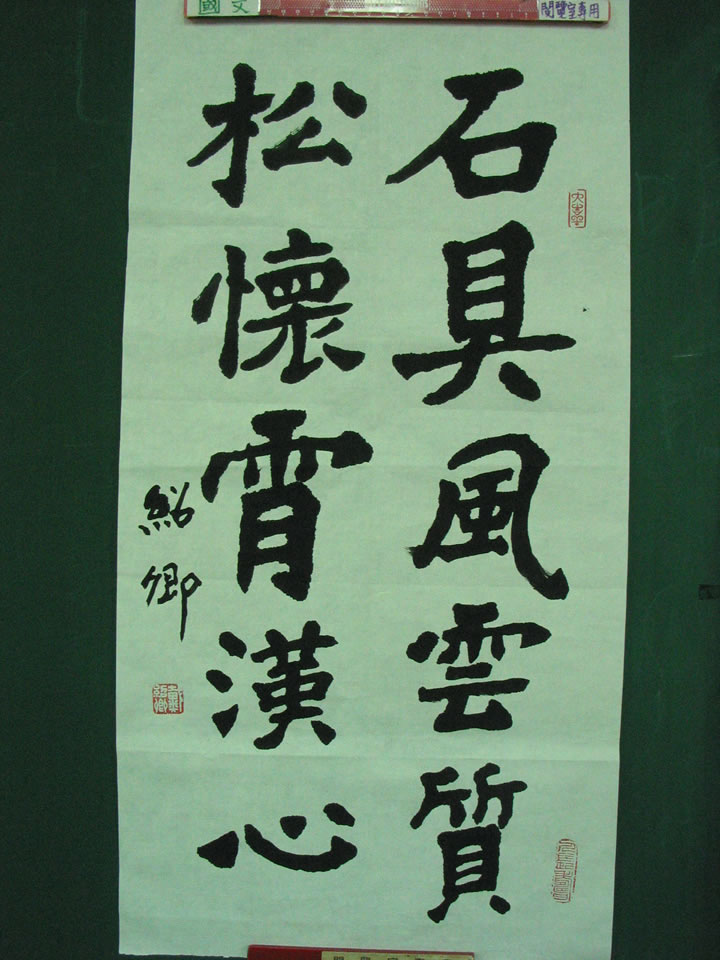 石具風雲質
松懷霄漢心
紹卿
國文
閱覽室專用